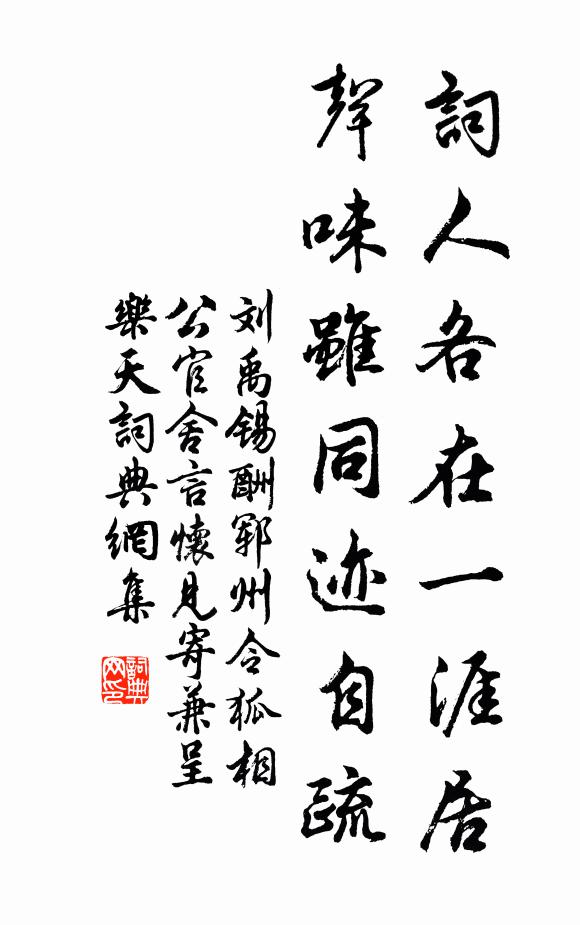 詞人各在一涯居
聲味雖同迹自疏
刘禹锡酬郓州令狐相
公官舍言懷見寄兼呈
樂天詞典網集
詞典網印